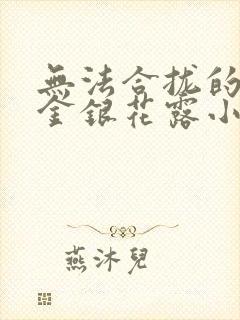 無法合拢的
金銀花露小
燕沐兒